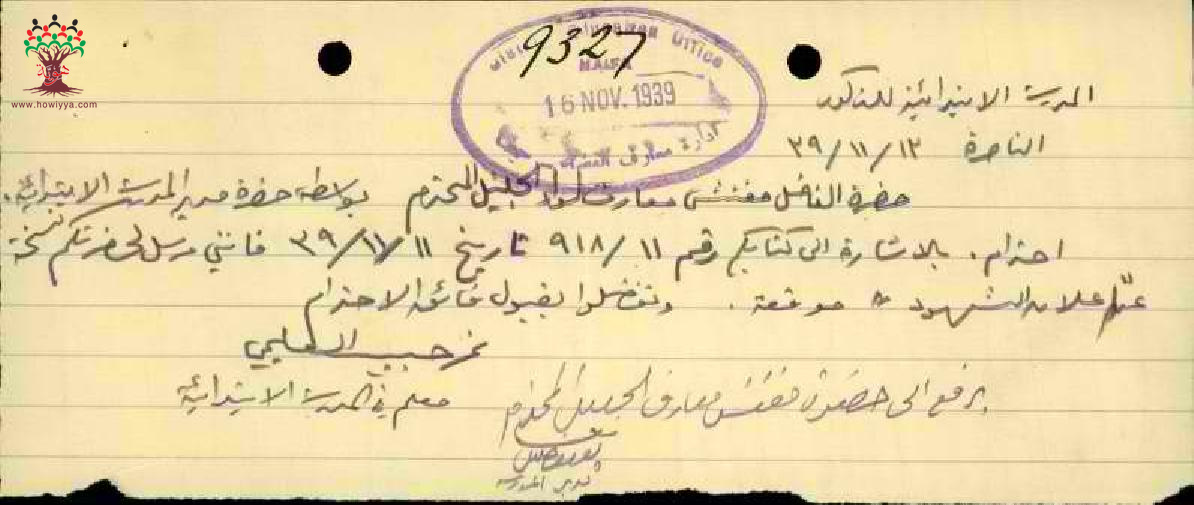 www.howiyya.com
9327
District Education Office
HAIFA
16 NOV. 1939
ادارة معارف
المدرسة الابتدائية للذكور
الناصرة ١٣/١١/٣٩
حضرة الفاضل مفتش معارف لواء الجليل المحترم بواسطة حضرة مدير المدرسة الابتدائية.
احترام. بالاشارة الى كتابكم رقم ٩١٨/١١ تاريخ ١١/١١/٣٩ فانني مرسل لحضرتكم نسخة
الشهود موقعة. وتفضلوا بقبول فائق الاحترام
نمر حبيب
معلم في المدرسة الابتدائية
يرفع الى حضرة مفتش معارف الجليل المحترم
مدير المدرسة